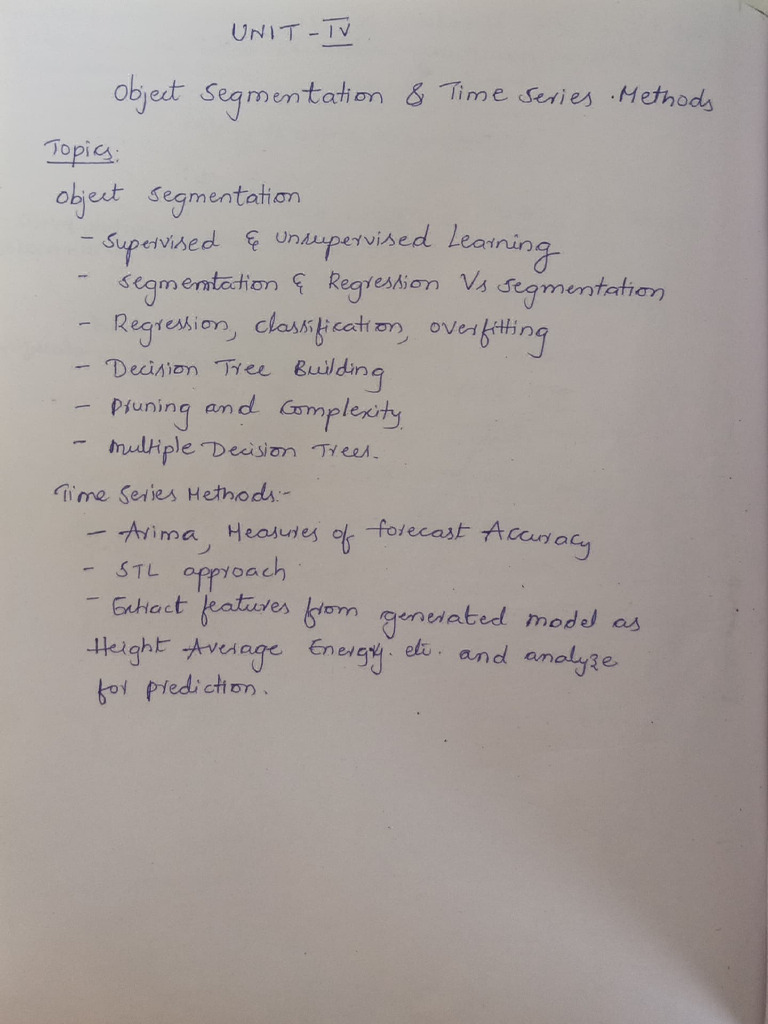 UNIT - IV
Object Segmentation & Time Series Methods
Topics:
Object Segmentation
- Supervised & Unsupervised Learning
- Segmentation & Regression Vs Segmentation
- Regression, Classification, overfitting
- Decision Tree Building
- Pruning and Complexity
- Multiple Decision Trees.
Time Series Methods:-
- Arima, Measures of forecast Accuracy
- STL approach
- Extract features from generated model as
Height Average Energy. etc. and analyze
for prediction.